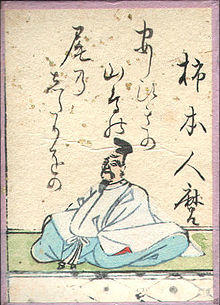 柿本人麿
あしひきの
山鳥の
尾乃
したりをの